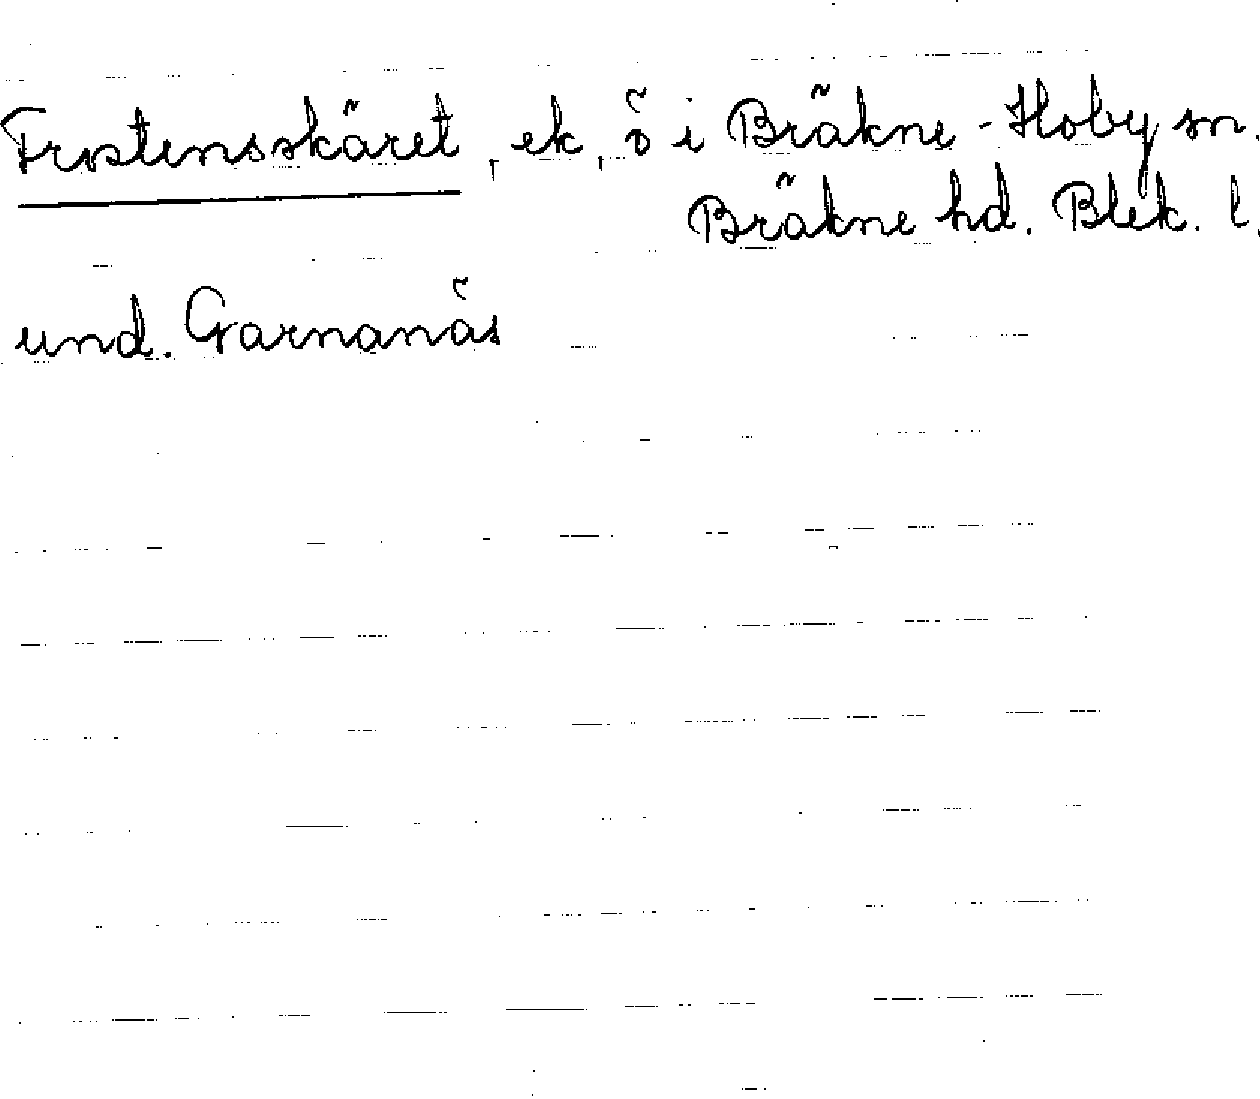 Frostensskäret, ek, ö i Bräkne-Hoby sn.
Bräkne hd. Blek. l.
und. Garnanäs